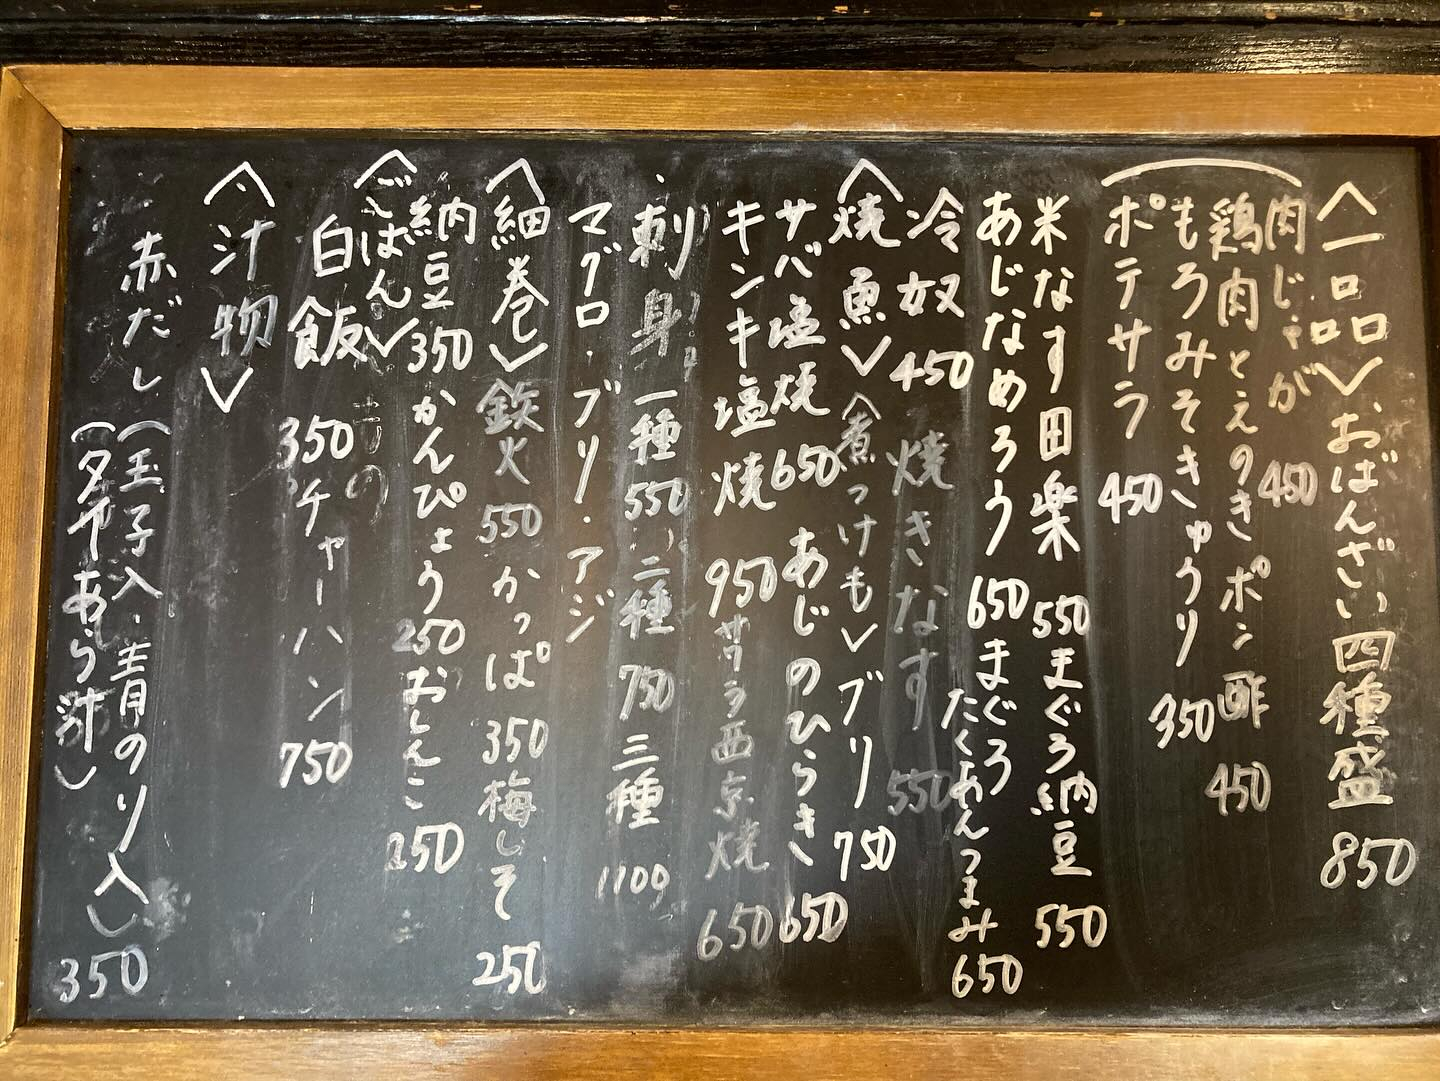 〈一品〉おばんざい四種盛 850
肉じゃが 450
鶏肉とえのき ポン酢 450
もろみそきゅうり 350
ポテサラ 450
米なす田楽 550 まぐろ納豆 550
あじなめろう 650 まぐろたくあんつまみ 650
冷奴 450 焼きなす 550
〈焼魚〉〈煮つけも〉ブリ 750
サバ塩焼 650 あじのひらき 650
キンキ塩焼 950 サワラ西京焼 650
刺身 一種 550 二種 750 三種 1100
マグロ・ブリ・アジ
〈細巻〉鉄火 550 かっぱ 350 梅しそ 250
納豆 350 かんぴょう 250 おしんこ 250
〈ごはん〉
白飯 350 チャーハン 750
〈汁物〉
赤だし (玉子入・青のり入)
(タイあら汁) 350